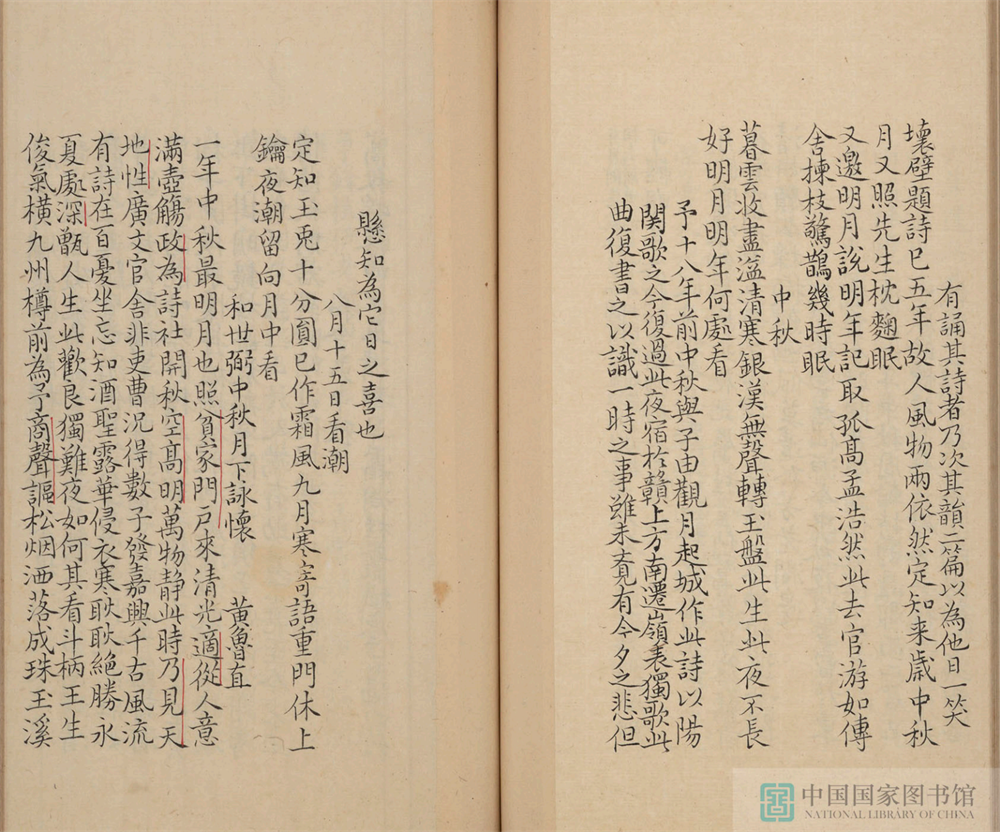 有誦其詩者乃次其韻二篇以為他日一笑
壞壁題詩已五年故人風物兩依然定知来歲中秋
月又照先生枕麴眠
又邀明月說明年記取孤髙孟浩然此去官游如傳
舍揀枝驚鵲幾時眠
中秋
暮雲收盡溢清寒銀漢無聲轉玉盤此生此夜不長
好明月明年何處看
予十八年前中秋與子由觀月起城作此詩以陽
関歌之今復過此夜宿於贛上方南遷嶺表獨歌此
曲復書之以識一時之事雖未覺有今夕之悲但
懸知為它日之喜也
八月十五日看潮
定知玉兎十分圓已作霜風九月寒寄語重門休上
鑰夜潮留向月中看
和世弼中秋月下詠懷 黄魯直
一年中秋最明月也照貧家門戸來清光適從人意
滿壺觴政為詩社開秋空髙明萬物静此時乃見天
地性廣文官舎非吏曹況得數子發嘉興千古風流
有詩在百憂坐忘知酒聖露華侵衣寒耿耿絶勝永
夏處深甑人生此歡良獨難夜如何其看斗柄王生
俊氣橫九州樽前為予商聲謳松烟洒落成珠玉溪
中国国家图书馆
NATIONAL LIBRARY OF CHINA